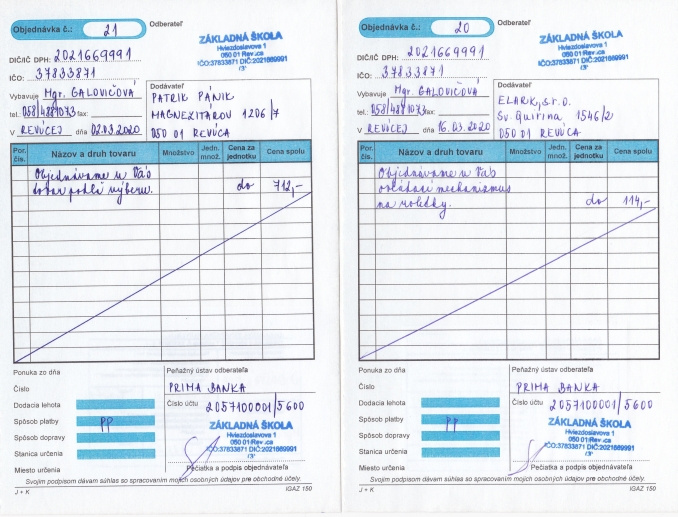 Objednávka č.: 21
Odberateľ
ZÁKLADNÁ ŠKOLA
Hviezdoslavova 1
050 01 Revúca
IČO:37833871 DIČ:2021669991
DIČ/IČ DPH: 2021669991
IČO: 37833871
Vybavuje Mgr. GALOVIČOVÁ
tel.: 058/4881073 fax:
V REVÚCEJ dňa 02.03.2020
Dodávateľ
PATRIK PÁNIK
MAGNEZITÁROV 1206/7
050 01 REVÚCA
Por. čís.
Názov a druh tovaru
Množstvo
Jedn. množ.
Cena za jednotku
Cena spolu
Objednávame u Vás
tovar podľa výberu. do 712,-
Ponuka zo dňa
Číslo
Dodacia lehota
Spôsob platby PP
Spôsob dopravy
Stanica určenia
Miesto určenia
Peňažný ústav odberateľa
PRIMA BANKA
Číslo účtu 2057100001/5600
ZÁKLADNÁ ŠKOLA
Hviezdoslavova 1
050 01 Revúca
IČO:37833871 DIČ:2021669991
Pečiatka a podpis objednávateľa
Svojim podpisom dávam súhlas so spracovaním mojich osobných údajov pre obchodné účely.
J + K
IGAZ 150
Objednávka č.: 20
Odberateľ
ZÁKLADNÁ ŠKOLA
Hviezdoslavova 1
050 01 Revúca
IČO:37833871 DIČ:2021669991
DIČ/IČ DPH: 2021669991
IČO: 37833871
Vybavuje Mgr. GALOVIČOVÁ
tel.: 058/4881073 fax:
V REVÚCEJ dňa 16.03.2020
Dodávateľ
ELARK, s.r.o.
Sv. Quirína 1546/2
050 01 REVÚCA
Por. čís.
Názov a druh tovaru
Množstvo
Jedn. množ.
Cena za jednotku
Cena spolu
Objednávame u Vás
ovládací mechanizmus
na roletky. do 114,-
Ponuka zo dňa
Číslo
Dodacia lehota
Spôsob platby PP
Spôsob dopravy
Stanica určenia
Miesto určenia
Peňažný ústav odberateľa
PRIMA BANKA
Číslo účtu 2057100001/5600
ZÁKLADNÁ ŠKOLA
Hviezdoslavova 1
050 01 Revúca
IČO:37833871 DIČ:2021669991
Pečiatka a podpis objednávateľa
Svojim podpisom dávam súhlas so spracovaním mojich osobných údajov pre obchodné účely.
J + K
IGAZ 150